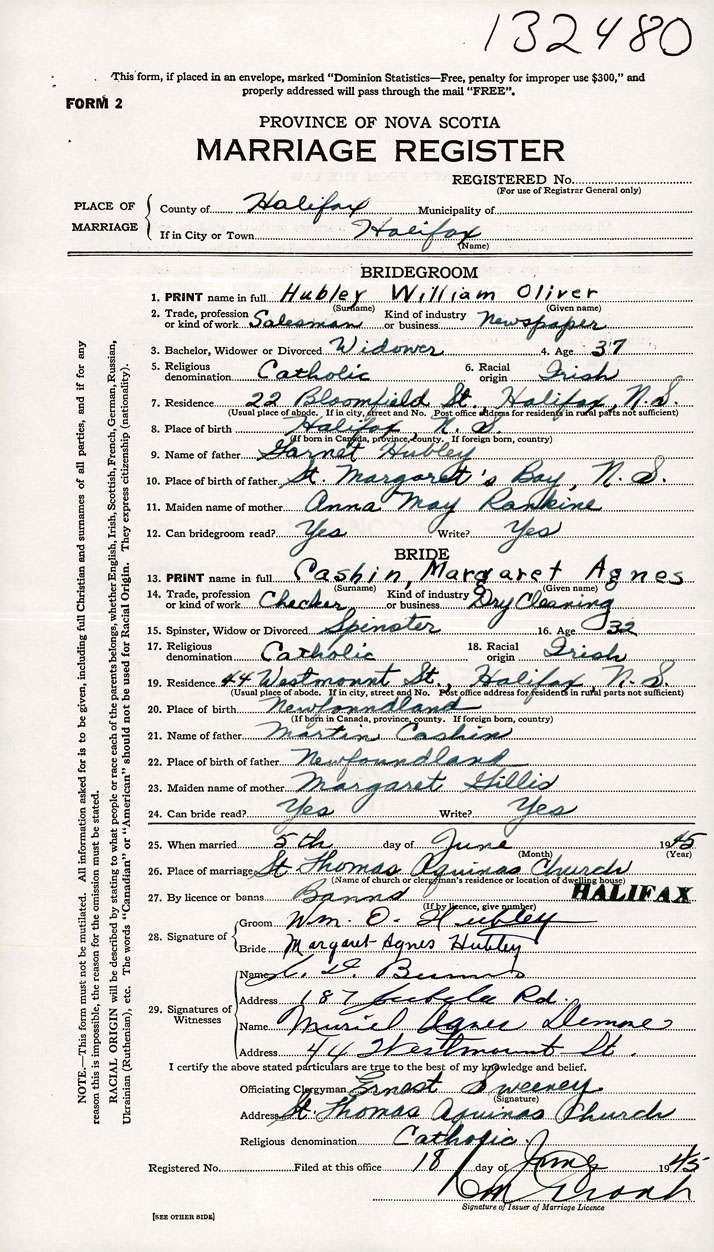 132480
This form, if placed in an envelope, marked "Dominion Statistics—Free, penalty for improper use $300," and
properly addressed will pass through the mail "FREE".
FORM 2
PROVINCE OF NOVA SCOTIA
MARRIAGE REGISTER
REGISTERED No.
(For use of Registrar General only)
PLACE OF MARRIAGE
County of Halifax Municipality of
If in City or Town Halifax
(Name)
BRIDEGROOM
1. PRINT name in full Hubley William Oliver
(Surname) (Given name)
2. Trade, profession or kind of work Salesman Kind of industry or business Newspaper
3. Bachelor, Widower or Divorced Widower 4. Age 37
5. Religious denomination Catholic 6. Racial origin Irish
7. Residence 22 Bloomfield St., Halifax, N.S.
(Usual place of abode. If in city, street and No. Post office address for residents in rural parts not sufficient)
8. Place of birth Halifax, N. S
(If born in Canada, province, county. If foreign born, country)
9. Name of father Garnet Hubley
10. Place of birth of father St. Margaret's Bay, N. S.
11. Maiden name of mother Anna May Rankine
12. Can bridegroom read? Yes Write? Yes
BRIDE
13. PRINT name in full Cashin, Margaret Agnes
(Surname) (Given name)
14. Trade, profession or kind of work Checker Kind of industry or business Dry Cleaning
15. Spinster, Widow or Divorced Spinster 16. Age 32
17. Religious denomination Catholic 18. Racial origin Irish
19. Residence 44 Westmount St., Halifax, N.S.
(Usual place of abode. If in city, street and No. Post office address for residents in rural parts not sufficient)
20. Place of birth Newfoundland
(If born in Canada, province, county. If foreign born, country)
21. Name of father Martin Cashin
22. Place of birth of father Newfoundland
23. Maiden name of mother Margaret Gillis
24. Can bride read? Yes Write? Yes
25. When married 5th day of June 1945
(Month) (Year)
26. Place of marriage St Thomas Aquinas Church
(Name of church or clergyman's residence or location of dwelling house)
27. By licence or banns Banns HALIFAX
(If by licence, give number)
28. Signature of
Groom Wm. O. Hubley
Bride Margaret Agnes Hubley
29. Signatures of Witnesses
Name
Address 187 Rd.
Name Muriel Agnes
Address 44 Westmount St.
I certify the above stated particulars are true to the best of my knowledge and belief.
Officiating Clergyman Ernest Sweeney
(Signature)
Address St. Thomas Aquinas Church
Religious denomination Catholic
Registered No. Filed at this office 18 day of June 1945
Signature of Issuer of Marriage Licence
[SEE OTHER SIDE]
NOTE.—This form must not be mutilated. All information asked for is to be given, including full Christian and surnames of all parties, and if for any
reason this is impossible, the reason for the omission must be stated.
RACIAL ORIGIN will be described by stating to what people or race each of the parents belongs, whether English, Irish, Scottish, French, German, Russian,
Ukrainian (Ruthenian), etc. The words "Canadian" or "American" should not be used for Racial Origin. They express citizenship (nationality).